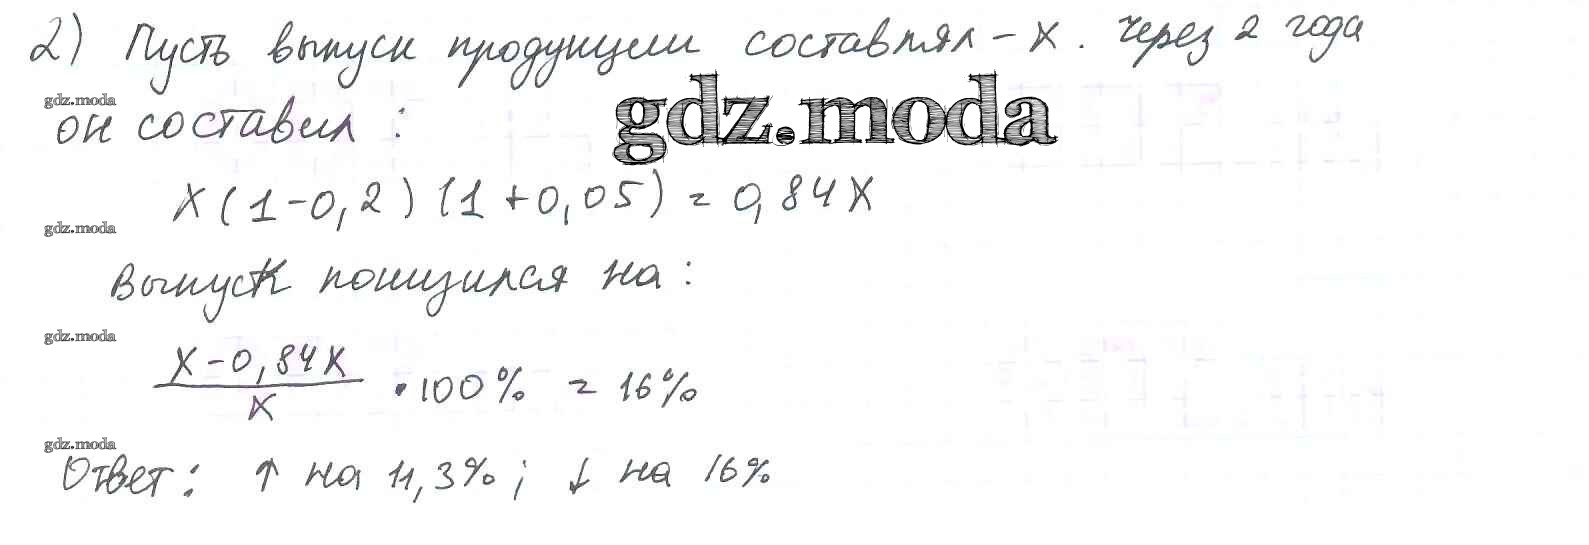 2) Пусть выпуск продукции составлял - x. Через 2 года
gdz.moda
он составил :
gdz.moda
x(1-0,2)(1+0,05) = 0,84x
gdz.moda
Выпуск понизился на:
gdz.moda
x-0,84x
x
• 100% = 16%
gdz.moda
Ответ: ↑ на 11,3%; ↓ на 16%